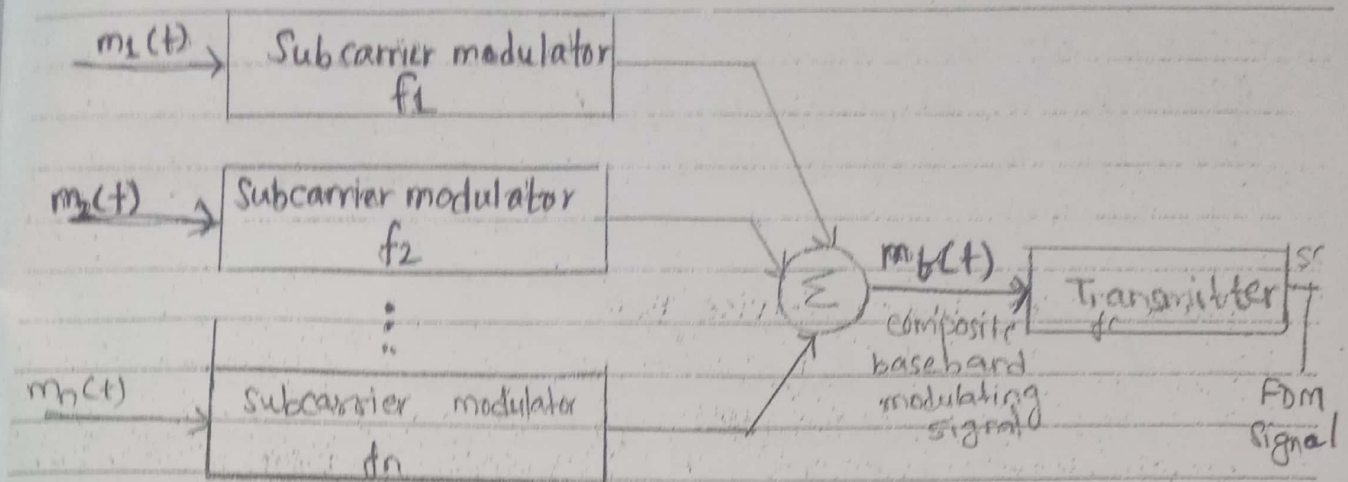 m1(t)
Subcarrier modulator
f1
m2(t)
Subcarrier modulator
f2
mn(t)
subcarrier modulator
fn
Σ
mb(t)
composite
baseband
modulating
signal
Transmitter
fc
FDM
signal